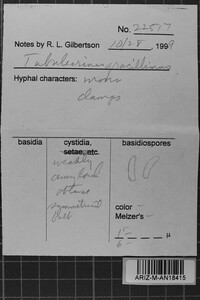 No. 22517
Notes by R. L. Gilbertson 10/28 1999
Tubulicrinis gracillimus
Hyphal characters: mono
clamps
basidia cystidia, basidiospores
setae, etc.
weakly
amyloid
obtuse
color -
Melzer's -
µ
ARIZ-M-AN18415